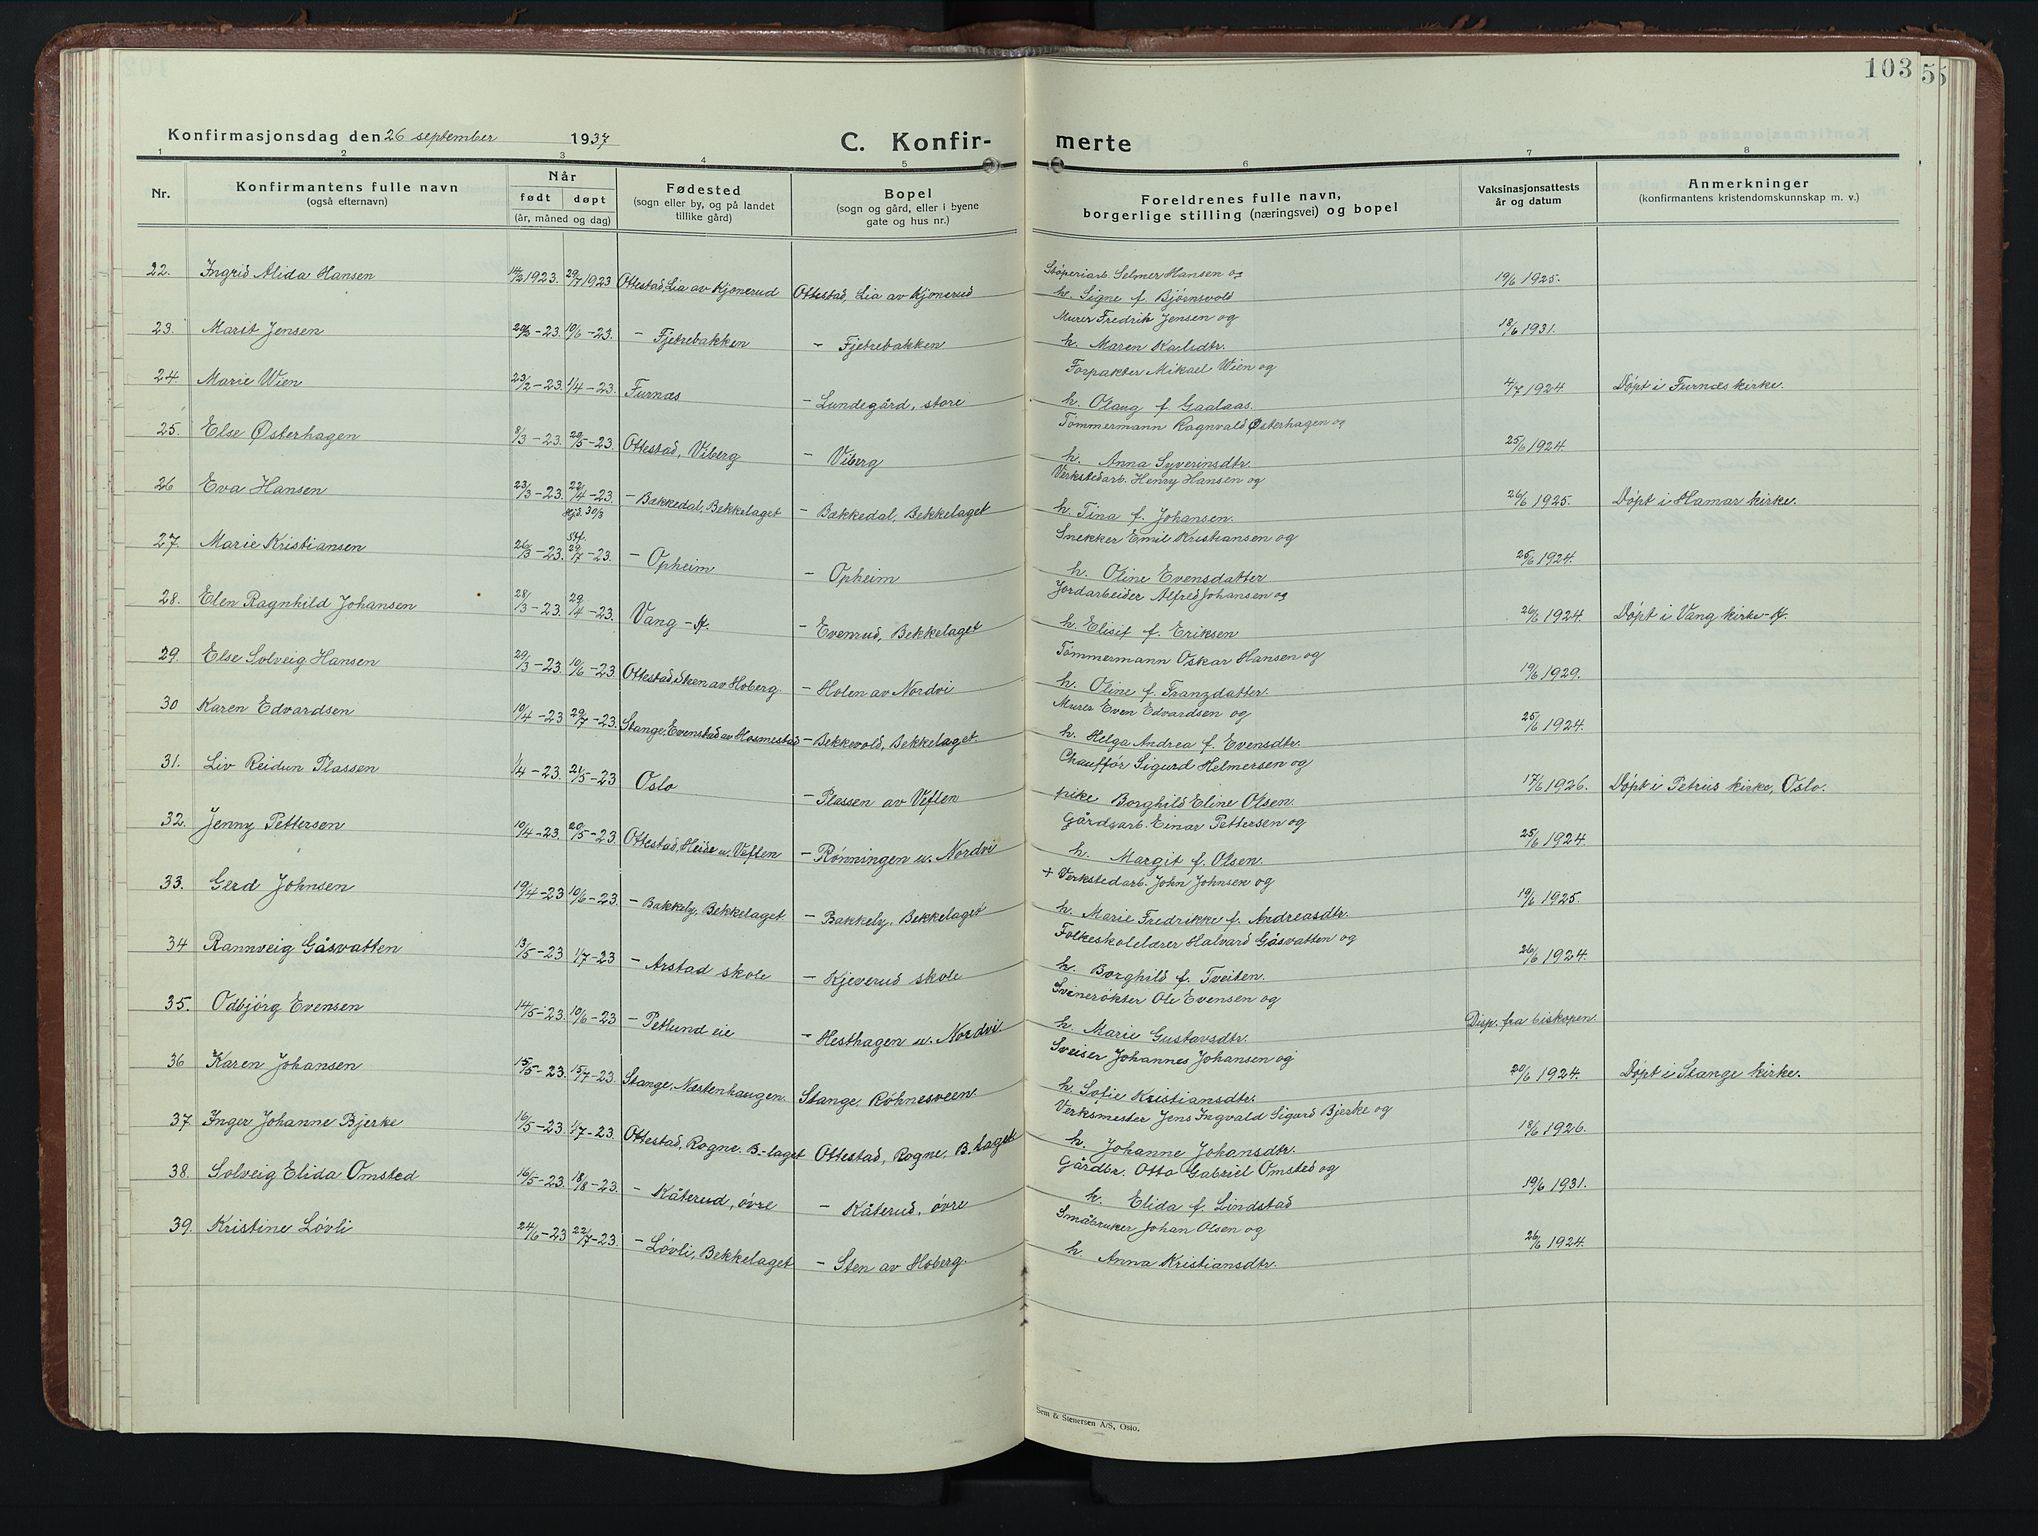 103
55
Konfirmasjonsdag den 26 september 1937
C. Konfir-
merte
1 2 3 4 5 6 7 8
Nr.
Konfirmantens fulle navn
(også efternavn)
Når
født døpt
(år, måned og dag)
Fødested
(sogn eller by, og på landet
tillike gård)
Bopel
(sogn og gård, eller i byene
gate og hus nr.)
Foreldrenes fulle navn,
borgerlige stilling (næringsvei) og bopel
Vaksinasjonsattests
år og datum
Anmerkninger
(konfirmantens kristendomskunnskap m. v.)
22. Ingrid Alida Hansen 14/2 1923. 29/7 1923 Ottestad, Lia av Kjonerud Ottestad, Lia av Kjonerud Støperiarb. Selmer Hansen og
h. Signe f. Bjørnsvold 19/6 1925.
23. Marit Jensen 20/2 - 23. 10/6 - 23. - Fjetrebakken - Fjetrebakken Murer Fredrik Jensen og
h. Maren Karlsdtr. 18/6 1931.
24. Marie Wien 23/2 - 23. 1/4 - 23. Furnes - Lundegård, store Forpakter Mikael Wien og
h. Olaug f. Gaalaas. 4/7 1924 Døpt i Furnes kirke.
25. Else Østerhagen 8/3 - 23. 20/5 - 23. Ottestad, Viberg - Viberg Tømmermann Ragnvald Østerhagen og
h. Anna Syverinsdtr. 25/6 1924.
26 Eva Hansen 23/3 - 23. 22/4 - 23. Hjd. 30/3 - Bakkedal, Bekkelaget - Bakkedal, Bekkelaget Verkstedarb. Henry Hansen og
h. Tina f. Johansen. 26/6 1925. Døpt i Hamar kirke.
27. Marie Kristiansen 26/3 - 23. Stf. 29/7 - 23. - Opheim - Opheim Snekker Emil Kristiansen og
h. Oline Evensdatter 25/6 1924.
28. Elen Ragnhild Johansen 28/3 - 23. 29/4 - 23. Vang - H. - Evenrud, Bekkelaget Jordarbeider Alfred Johansen og
h. Elisif f. Eriksen 26/6 1924. Døpt i Vang kirke - H.
29. Else Solveig Hansen 29/3 - 23. 10/6 - 23. Ottestad, Sten av Hoberg. - Holen av Nordvi Tømmermann Oskar Hansen og
h. Oline f. Franzdatter. 19/6 1929.
30 Karen Edvardsen 10/4 - 23 29/7 - 23. Stange, Evenstad av Hosmestad - Bekkevold, Bekkelaget. Murer Even Edvardsen og
h. Helga Andrea f. Evensdtr. 25/6 1924.
31. Liv Reidun Plassen 1/4 - 23. 21/5 - 23 Oslo - Plassen av Veflen Chauffør Sigurd Helmersen og
pike Borghild Eline Olsen. 17/6 1926. Døpt i Petrus kirke, Oslo.
32. Jenny Pettersen 10/4 - 23. 20/5 - 23. Ottestad, Heide u. Veflen - Rønningen u. Nordvi Gårdsarb. Einar Pettersen og
h. Margit f. Olsen. 25/6 1924.
33. Gerd Johnsen 19/4 - 23 10/6 - 23. - Bakkely, Bekkelaget - Bakkely, Bekkelaget + Verkstedarb. John Johnsen og
h. Marie Fredrikke f. Andreasdtr. 19/6 1925.
34 Rannveig Gåsvatten 13/5 - 23 1/7 - 23 - Arstad skole - Kjeverud skole Folkeskolelærer Halvard Gåsvatten og
h. Borghild f. Tveiten. 26/6 1924.
35. Odbjørg Evensen 14/5 - 23. 10/6 - 23 - Petlund eie - Hesthagen u. Nordvi Svinerøkter Ole Evensen og
h. Marie Gustavsdtr. Disp. fra biskopen.
36 Karen Johansen 15/5 - 23. 15/7 - 23. Stange, Næstenhaugen. Stange, Røhnesveen. Sveiser Johannes Johansen og
h. Sofie Kristiansdtr. 20/6 1924. Døpt i Stange kirke.
37 Inger Johanne Bjerke 16/5 - 23. 1/7 - 23. Ottestad, Rogne. B.-laget Ottestad, Rogne. B.laget Verksmester Jens Ingvald Sigurd Bjerke og
h. Johanne Johansdtr. 18/6 1926.
38. Solveig Elida Omsted 16/5 - 23. 18/8 - 23. - Kåterud, øvre - Kåterud, øvre Gårdbr. Otto Gabriel Omsted og
h. Elida f. Lindstad 19/6 1931.
39. Kristine Løvli 24/6 - 23 22/7 - 23. - Løvli, Bekkelaget - Sten av Hoberg. Småbruker Johan Olsen og
h. Anna Kristiansdtr. 26/6 1924.
Sem & Stenersen A/S, Oslo.